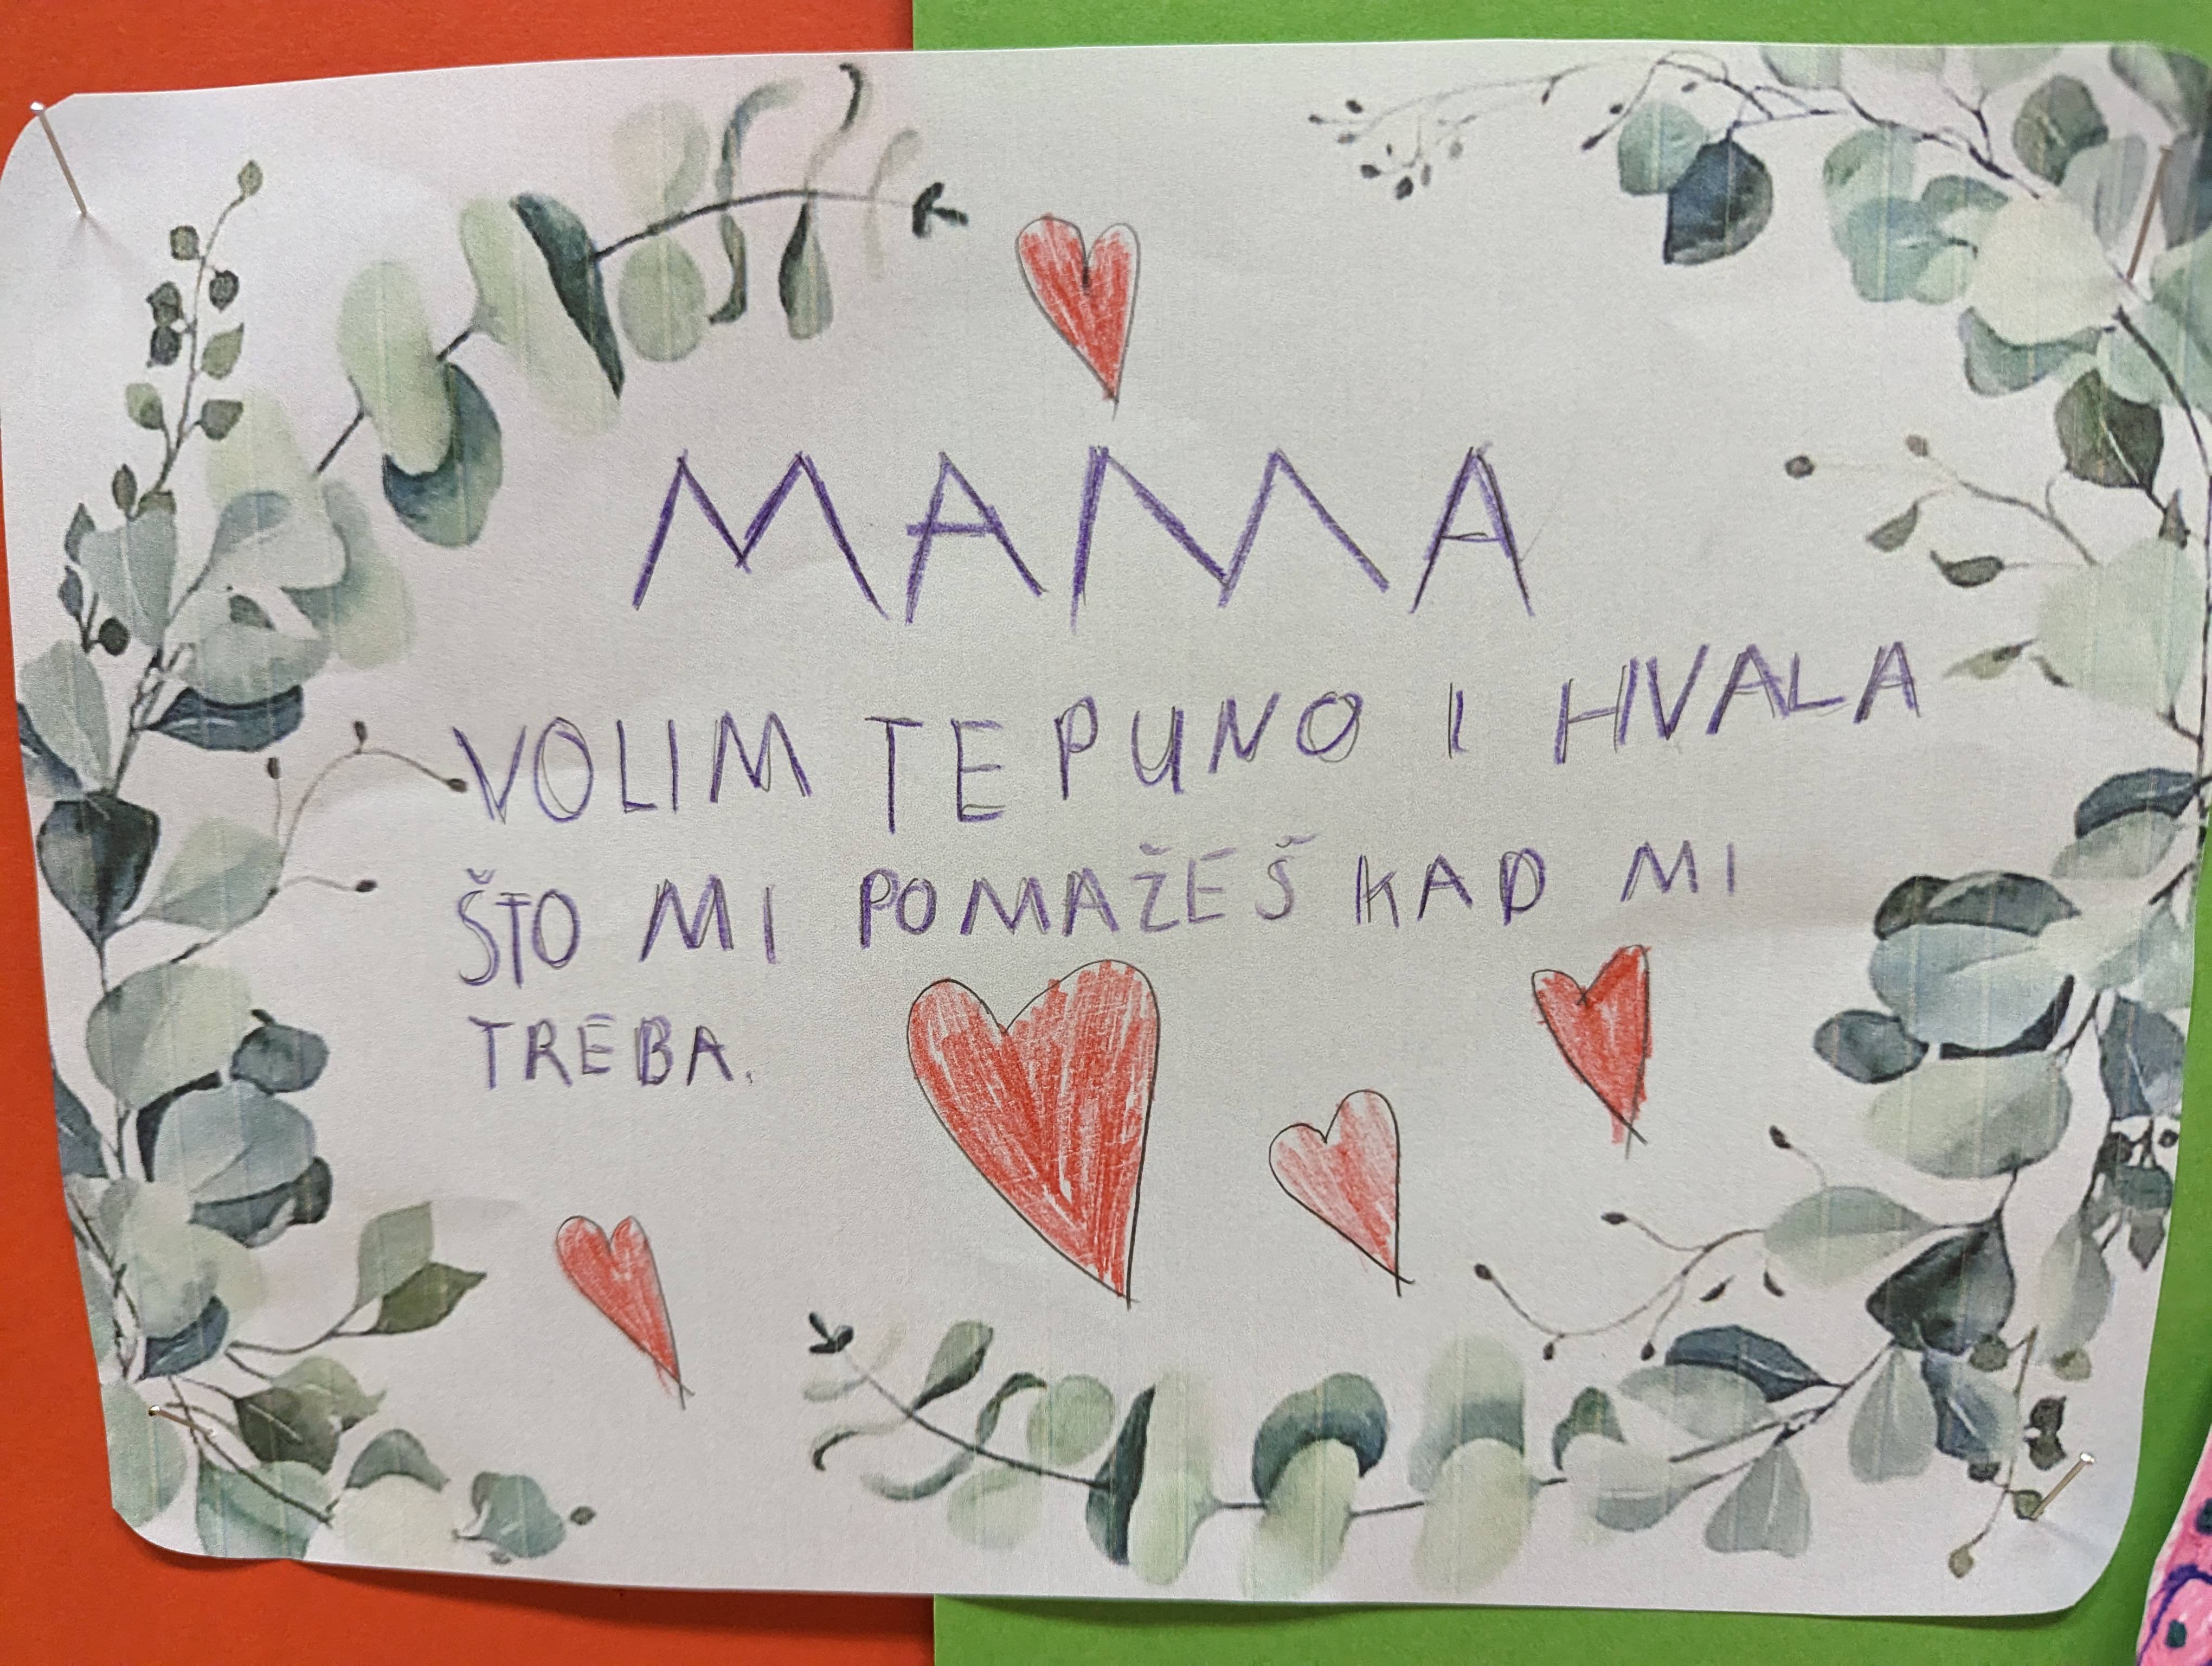 MAMA
VOLIM TE PUNO I HVALA
ŠTO MI POMAŽEŠ KAD MI
TREBA.